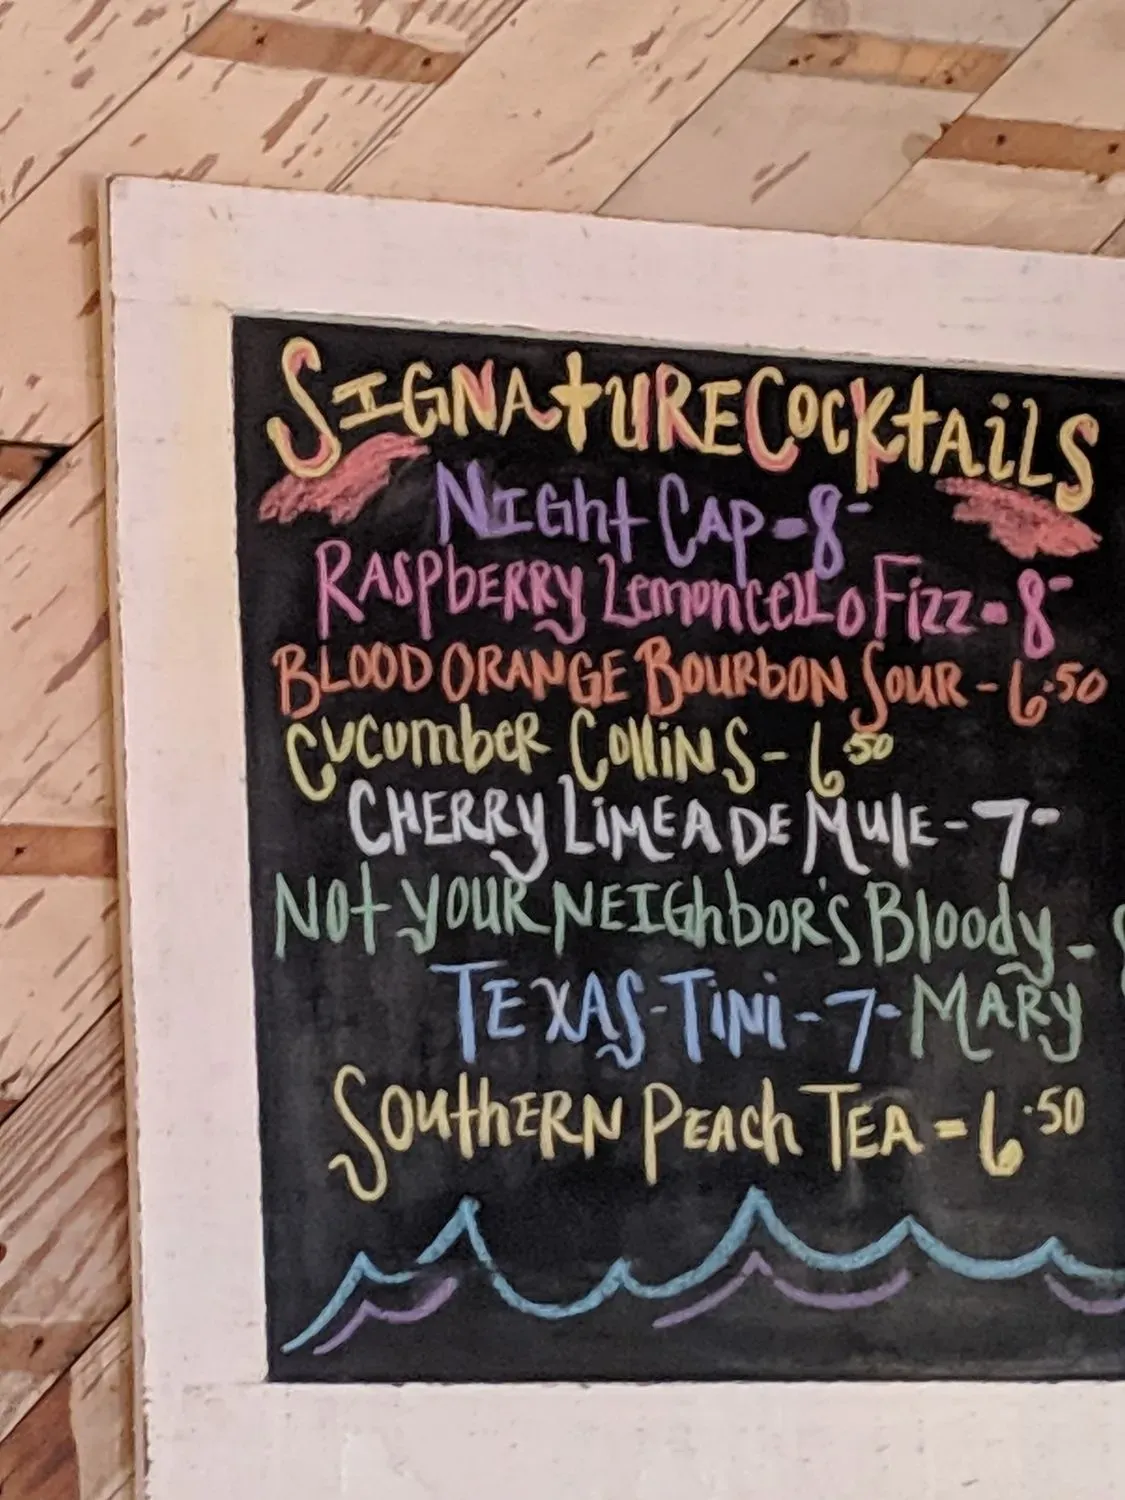 SIGNATURE COCKTAILS
NIGHT CAP - 8-
RASPBERRY LEMONCELLO FIZZ - 8-
BLOOD ORANGE BOURBON SOUR - 6.50
CUCUMBER COLLINS - 6.50
CHERRY LIMEADE MULE - 7-
NOT YOUR NEIGHBOR'S BLOODY -
MARY
TEXAS-TINI - 7-
SOUTHERN PEACH TEA = 6.50